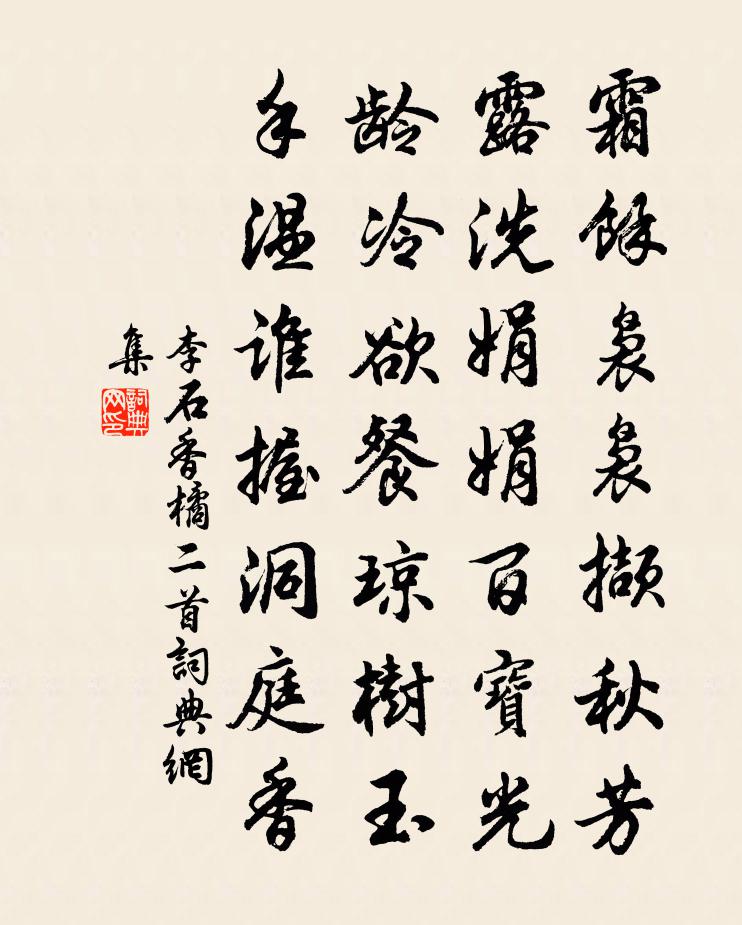 霜餘裊裊擷秋芳
露洗娟娟百寶光
龄冷欲餐琼樹玉
手温誰握洞庭香
李石香橘二首詞典網
集
詞典网印